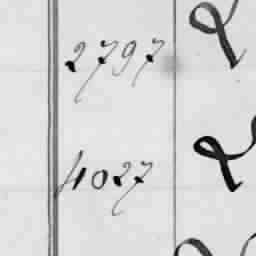 2797
4027